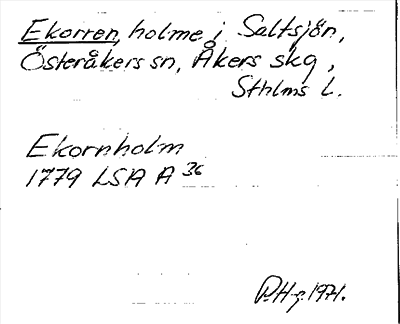 Ekorren, holme i Saltsjön,
Österåkers sn, Åkers skg,
Sthlms L.
Ekornholm
1779 LSA A 36
P.H-g. 1971.